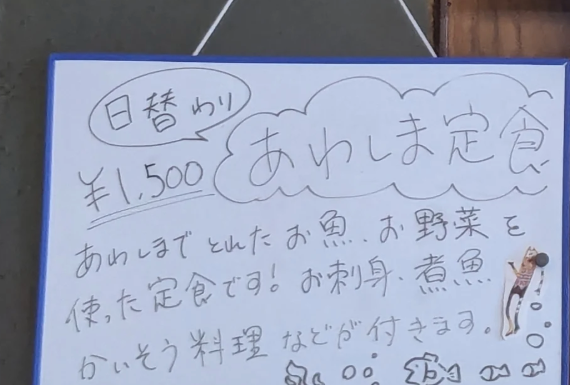 日替わり
あわしま定食
¥1,500
あわしまでとれたお魚、お野菜を
使った定食です!お刺身、煮魚
かいそう料理などが付きます。